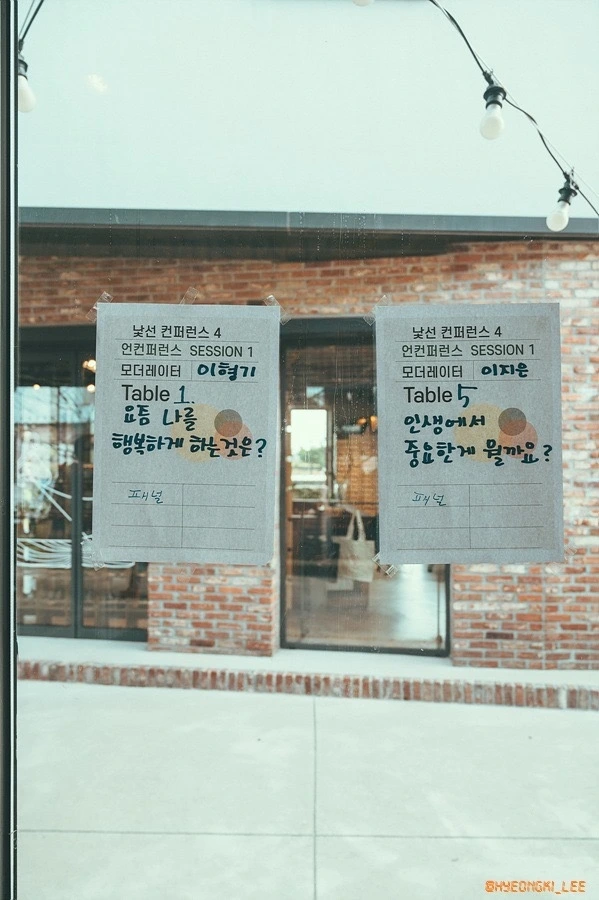 낯선 컨퍼런스 4
언컨퍼런스 SESSION 1
모더레이터 이형기
Table 1.
요즘 나를
행복하게 하는것은?
패널
낯선 컨퍼런스 4
언컨퍼런스 SESSION 1
모더레이터 이지은
Table 5
인생에서
중요한게 뭘까요?
패널
@HYEONGKI_LEE